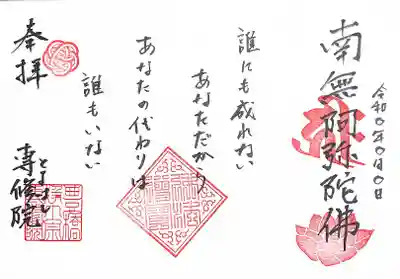 令和〇年〇月〇日
南無阿弥陀佛
誰にも成れない
あなただから
あなたの代わりは
誰もいない
奉拝
とよはし
專修院